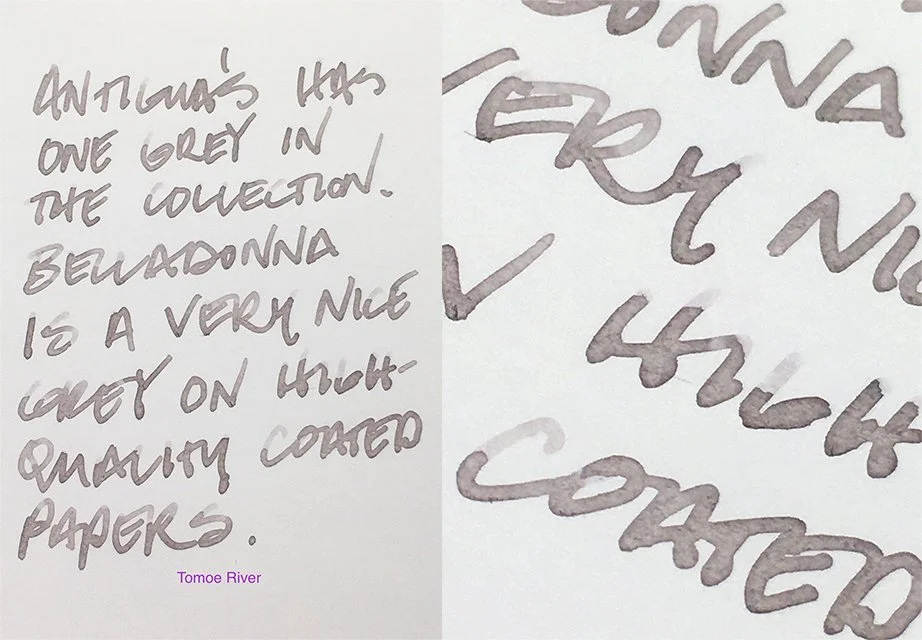 ANTIGUA'S HAS
ONE GREY IN
THE COLLECTION.
BELLADONNA
IS A VERY NICE
GREY ON HIGH-
QUALITY COATED
PAPERS.
Tomoe River
ONNA
VERY NIC
HIGH
COATED